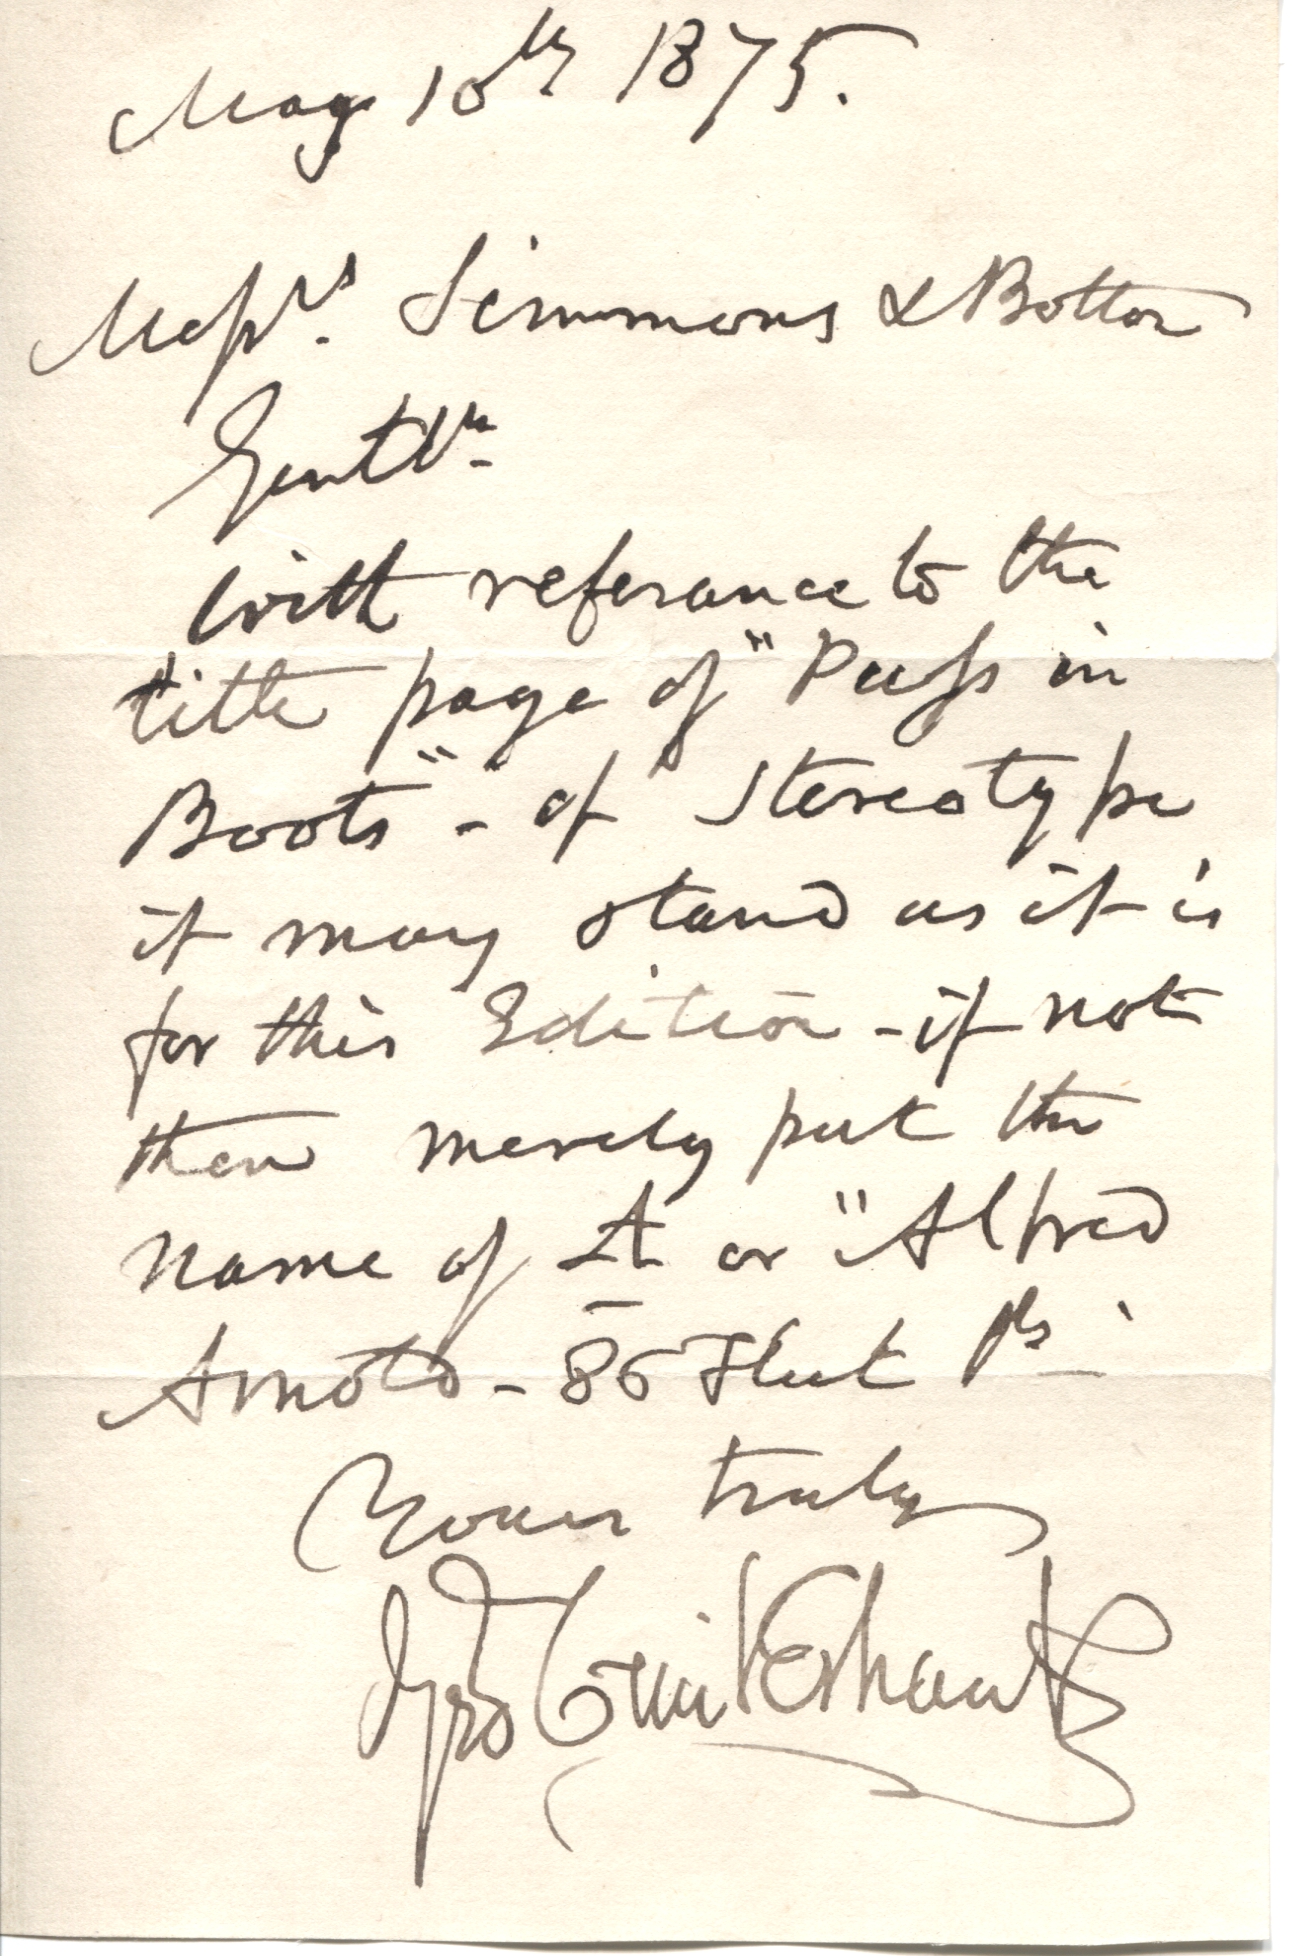 May 10th 1875.
Messrs. Simmons & Botten
Gentln
With reference to the
title page of "Puss in
Boots" - if Stereotype
it may stand as it is
for this Edition - if not
then merely put the
name of A or "Alfred
Arnold - 86 Fleet St
Yours truly
Geo Cruikshank